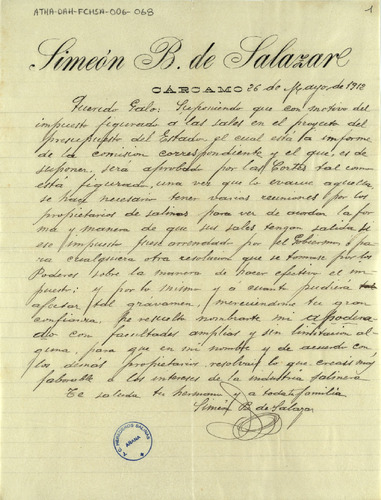 ATHA-DAH-FCHSA-006-068
1
Simeón B. de Salazar
CÁRCAMO 26 de Mayo de 1912
Querido Galo: Suponiendo que con motivo del
impuesto figurado a las sales en el proyecto del
presupuesto del Estado, el cual está la informe
de la comision correspondiente y el que, es de
suponer, será aprobado por las Cortes tal como
está figurado, una vez que lo evacue aquella,
se hace necesario tener varias reuniones por los
propietarios de salinas para ver de acordar la for
ma y manera de que sus sales tengan salida si
ese impuesto fuese arrendado por el Gobierno ó pa
ra cualquiera otra resolucion que se tomase por los
Poderes sobre la manera de hacer efectivo el im
puesto; y por lo mismo y a cuanto pudiera
afectar tal gravamen, mereciéndome tu gran
confianza, he resuelto nombrarte mi apodera
do con facultades amplias y sin limitacion al
guna, para que en mi nombre y de acuerdo con
los demás propietarios, resolvais lo que creais muy
faborable á los intereses de la industria salinera
Te saluda tu hermano y a toda tu familia
Simeón B. de Salazar
A.C. HEREDEROS SALINAS
AÑANA